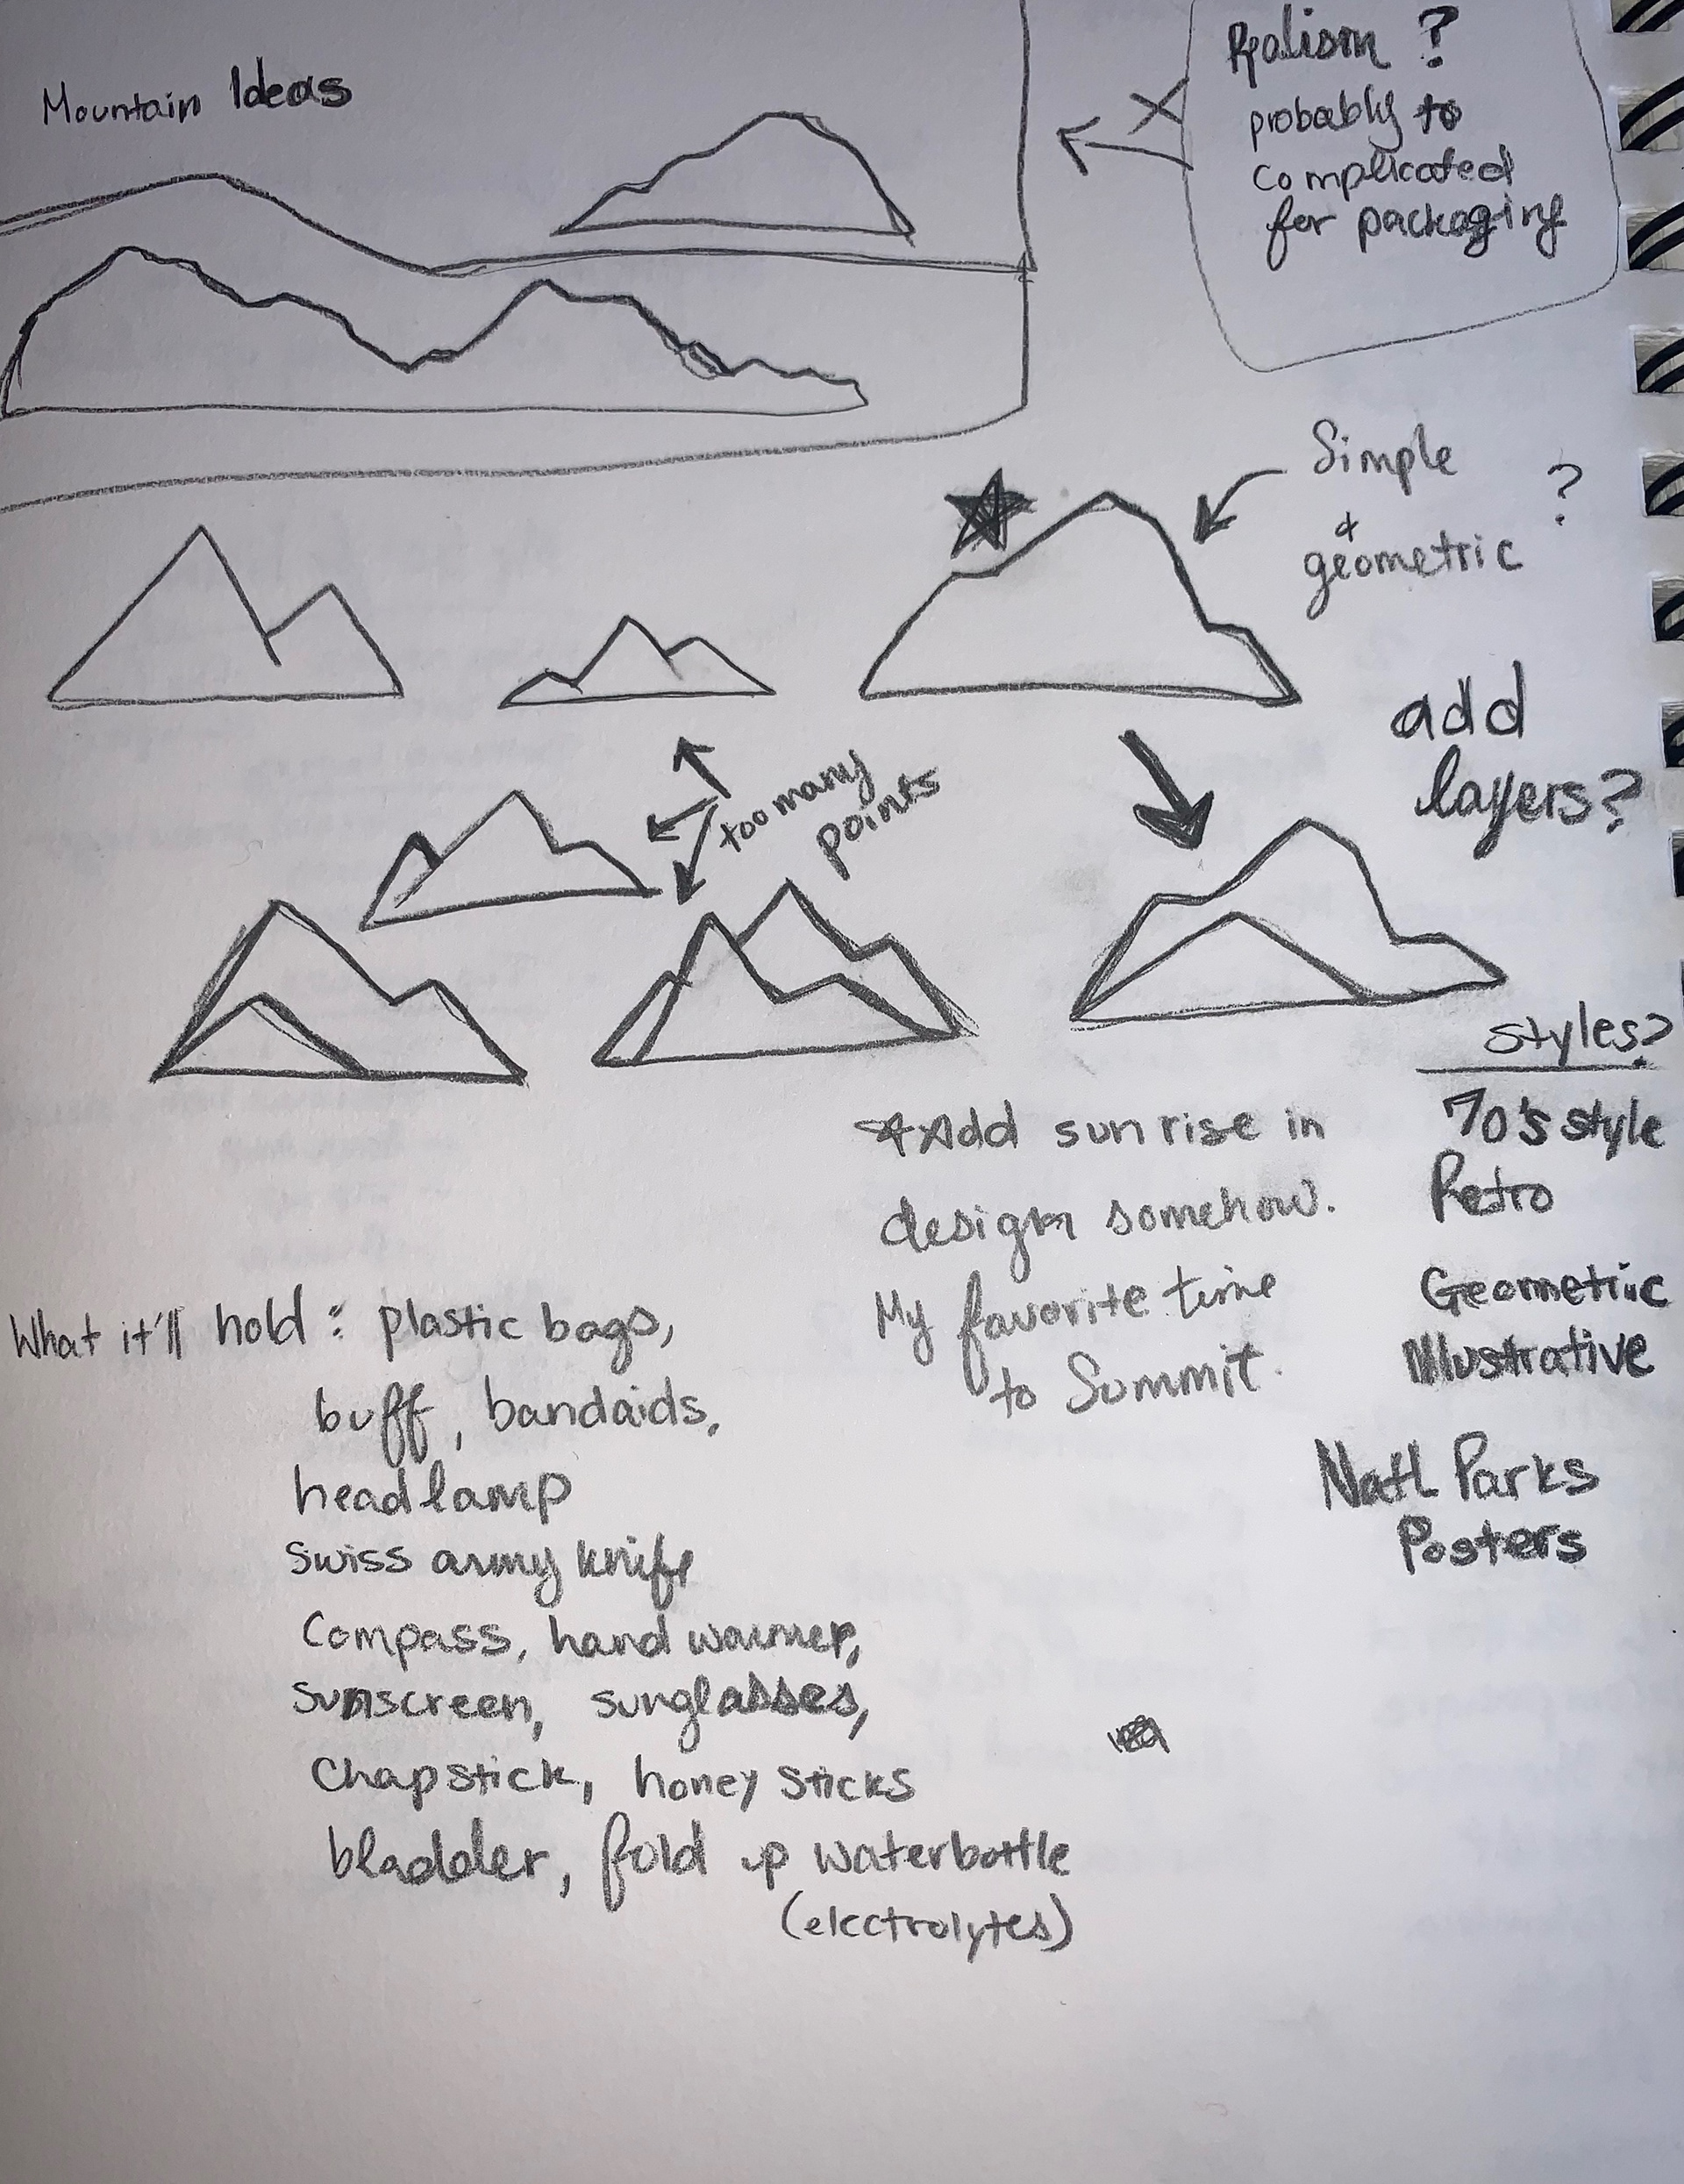 Mountain Ideas
Realism ?
probably to
complicated
for packaging
Simple
&
geometric ?
add
layers?
too many
points
styles?
70's style
Retro
Geometric
Illustrative
Natl Parks
Posters
*Add sunrise in
design somehow.
My favorite time
to Summit.
What it'll hold : plastic bags,
buff, bandaids,
headlamp
Swiss army knife
Compass, hand warmer,
sunscreen, sunglasses,
Chapstick, honey sticks
bladder, fold up waterbottle
(electrolytes)